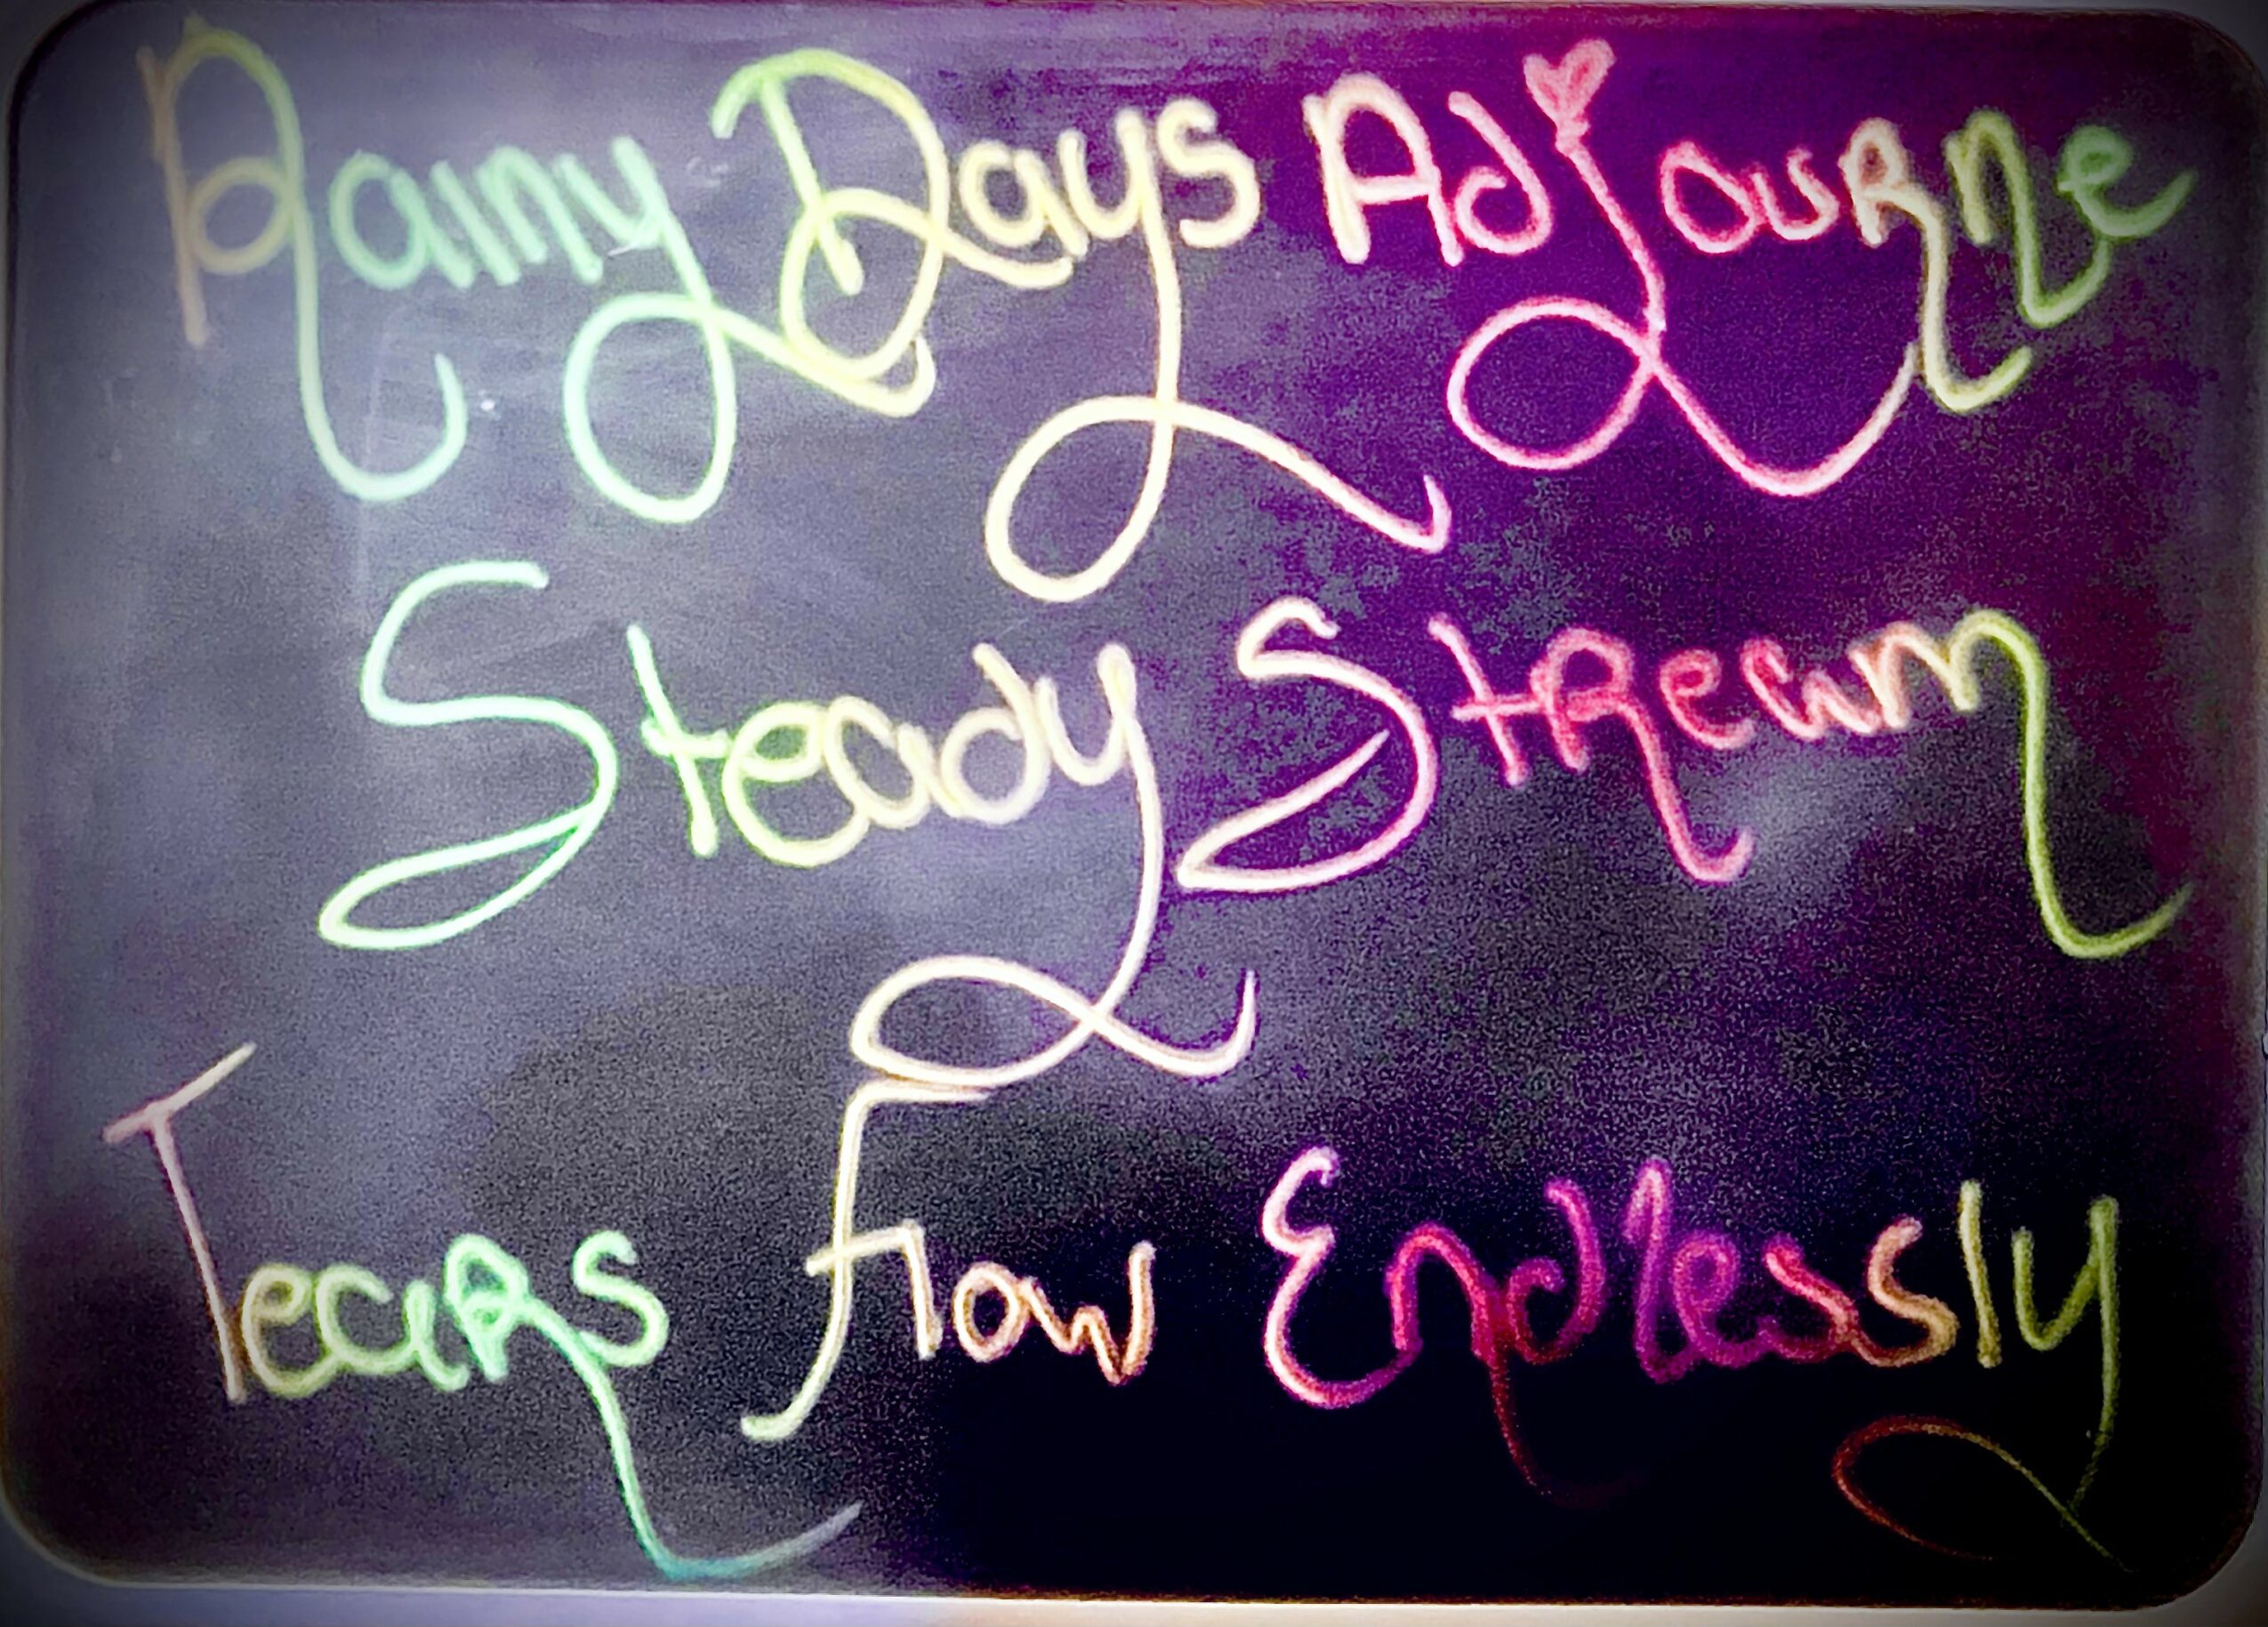 Rainy Days Adjourne
Steady Stream
Tears Flow Endlessly